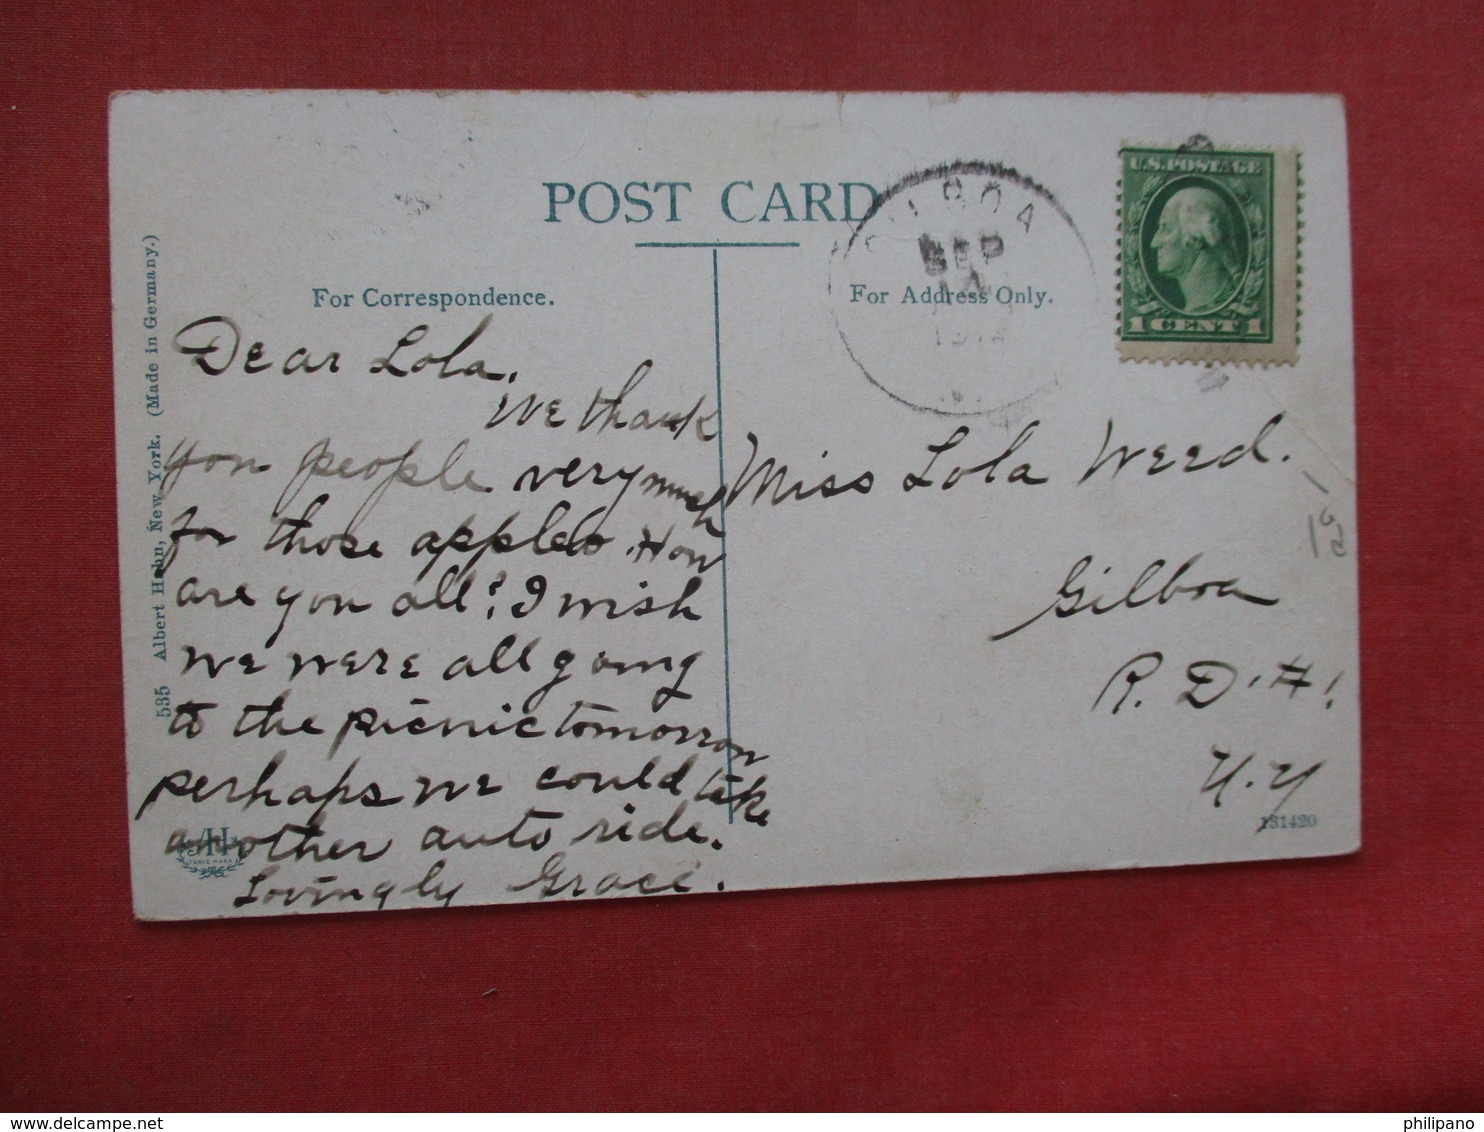 POST CARD
For Correspondence.
For Address Only.
GILBOA
SEP
U.S. POSTAGE
1 CENT 1
535 Albert Hahn, New York. (Made in Germany.)
Dear Lola.
We thank
you people very much
for those apples. How
are you all? I wish
we were all going
to the picnic tomorrow
perhaps we could take
another auto ride.
Lovingly Grace.
Miss Lola Weed.
Gilboa
R. D.
N. Y
131420
AH
TRADE MARK
delcampe.net
philipano